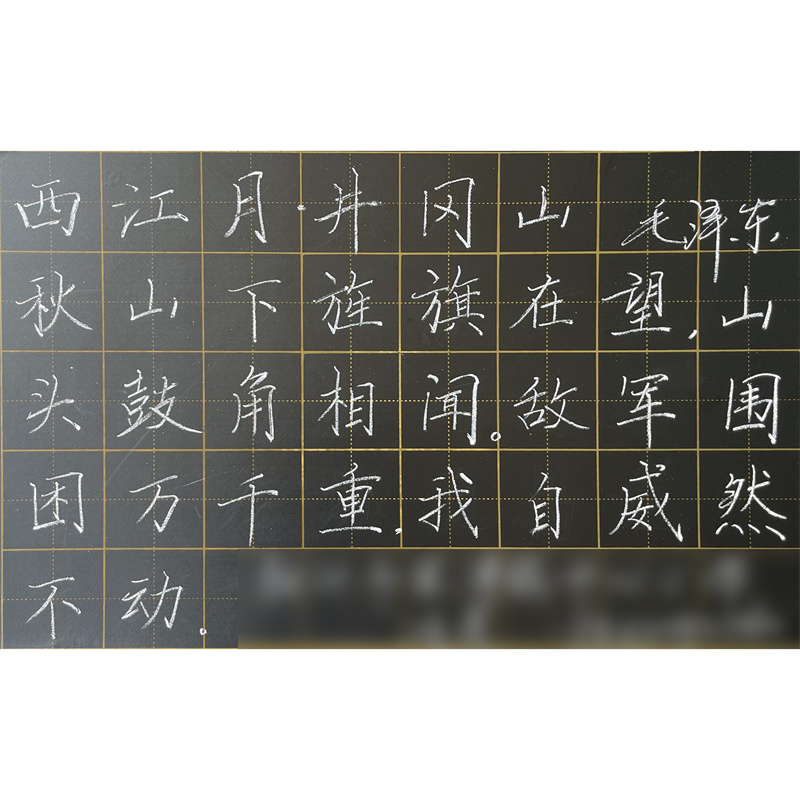 西江月·井冈山 毛泽东
秋山下旌旗在望,山
头鼓角相闻。敌军围
困万千重,我自威然
不动。